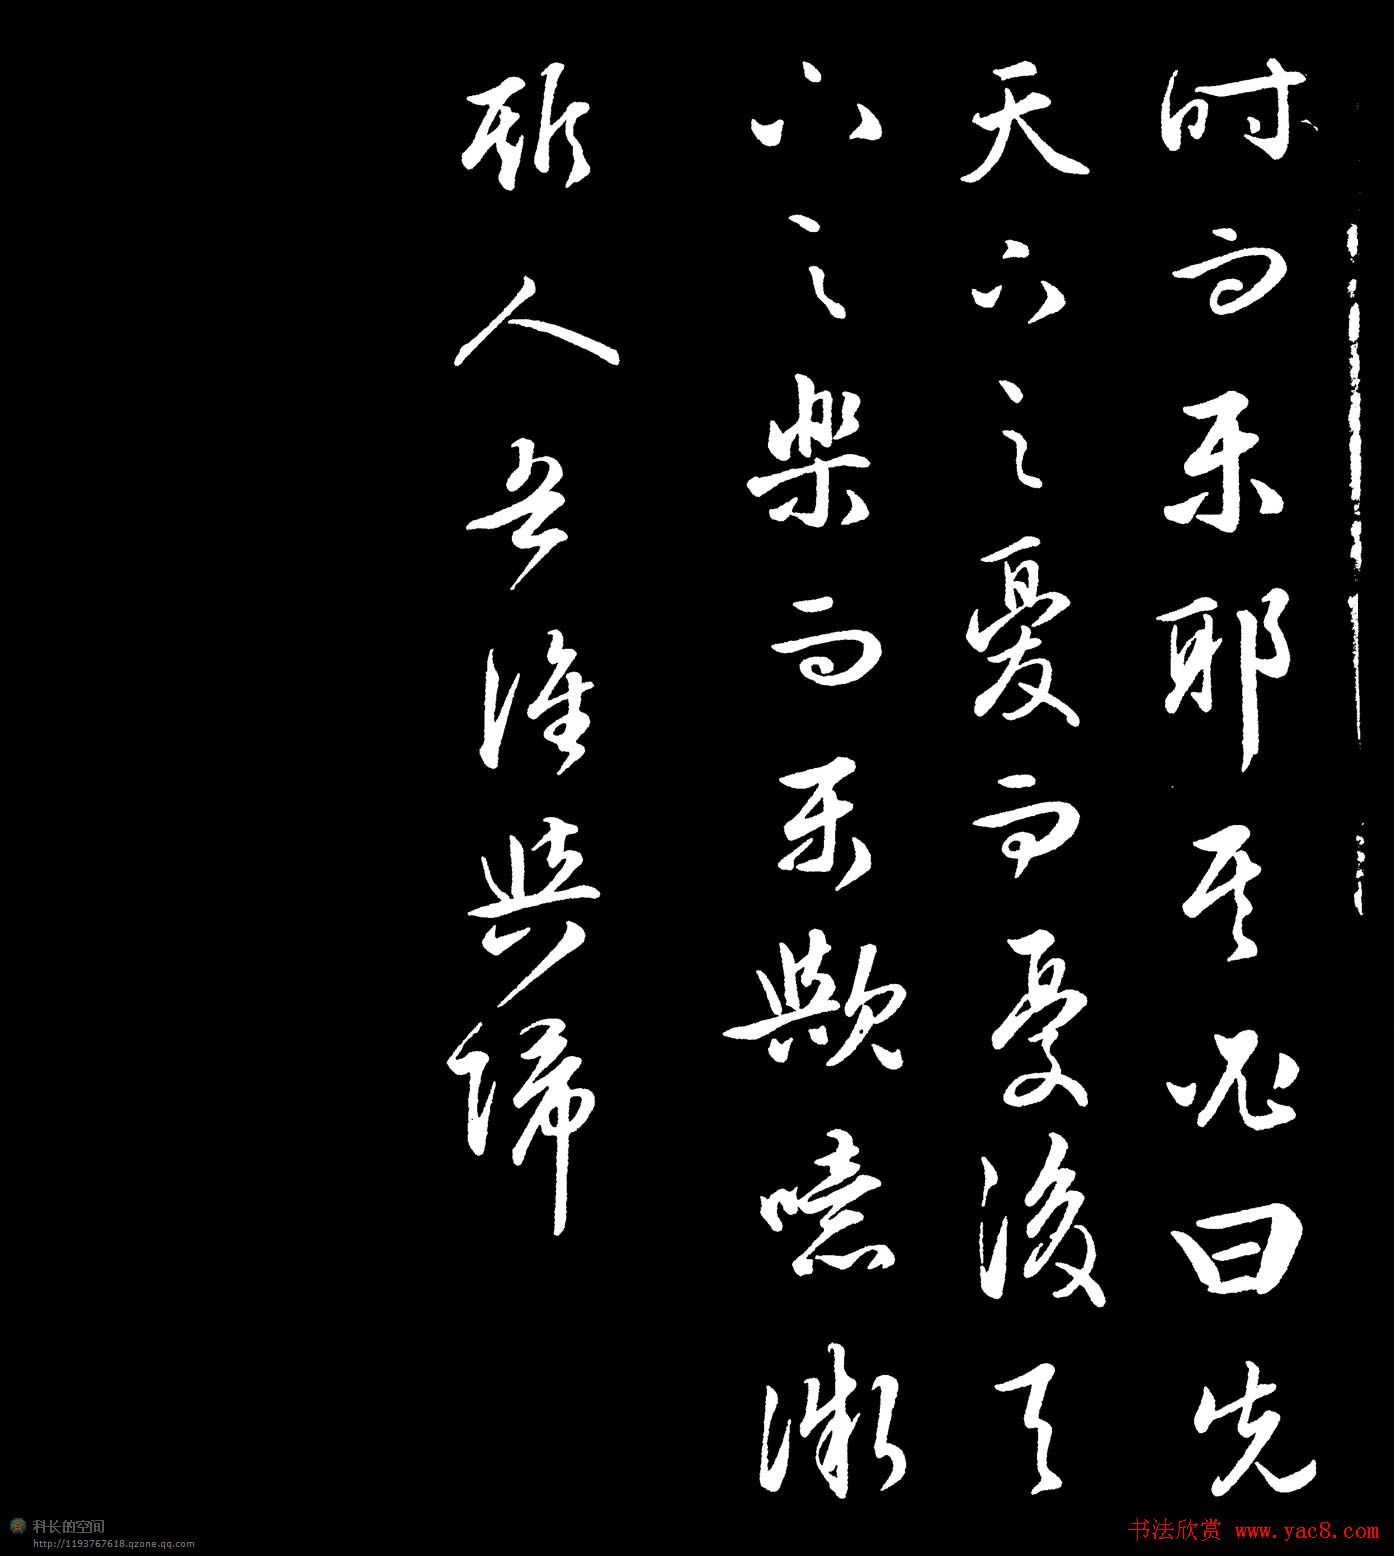 时而乐耶其必曰先
天下之憂而憂後天
下之樂而乐歟噫微
斯人吾谁與歸
科长的空间
http://1193767618.qzone.qq.com
书法欣赏 www.yac8.com